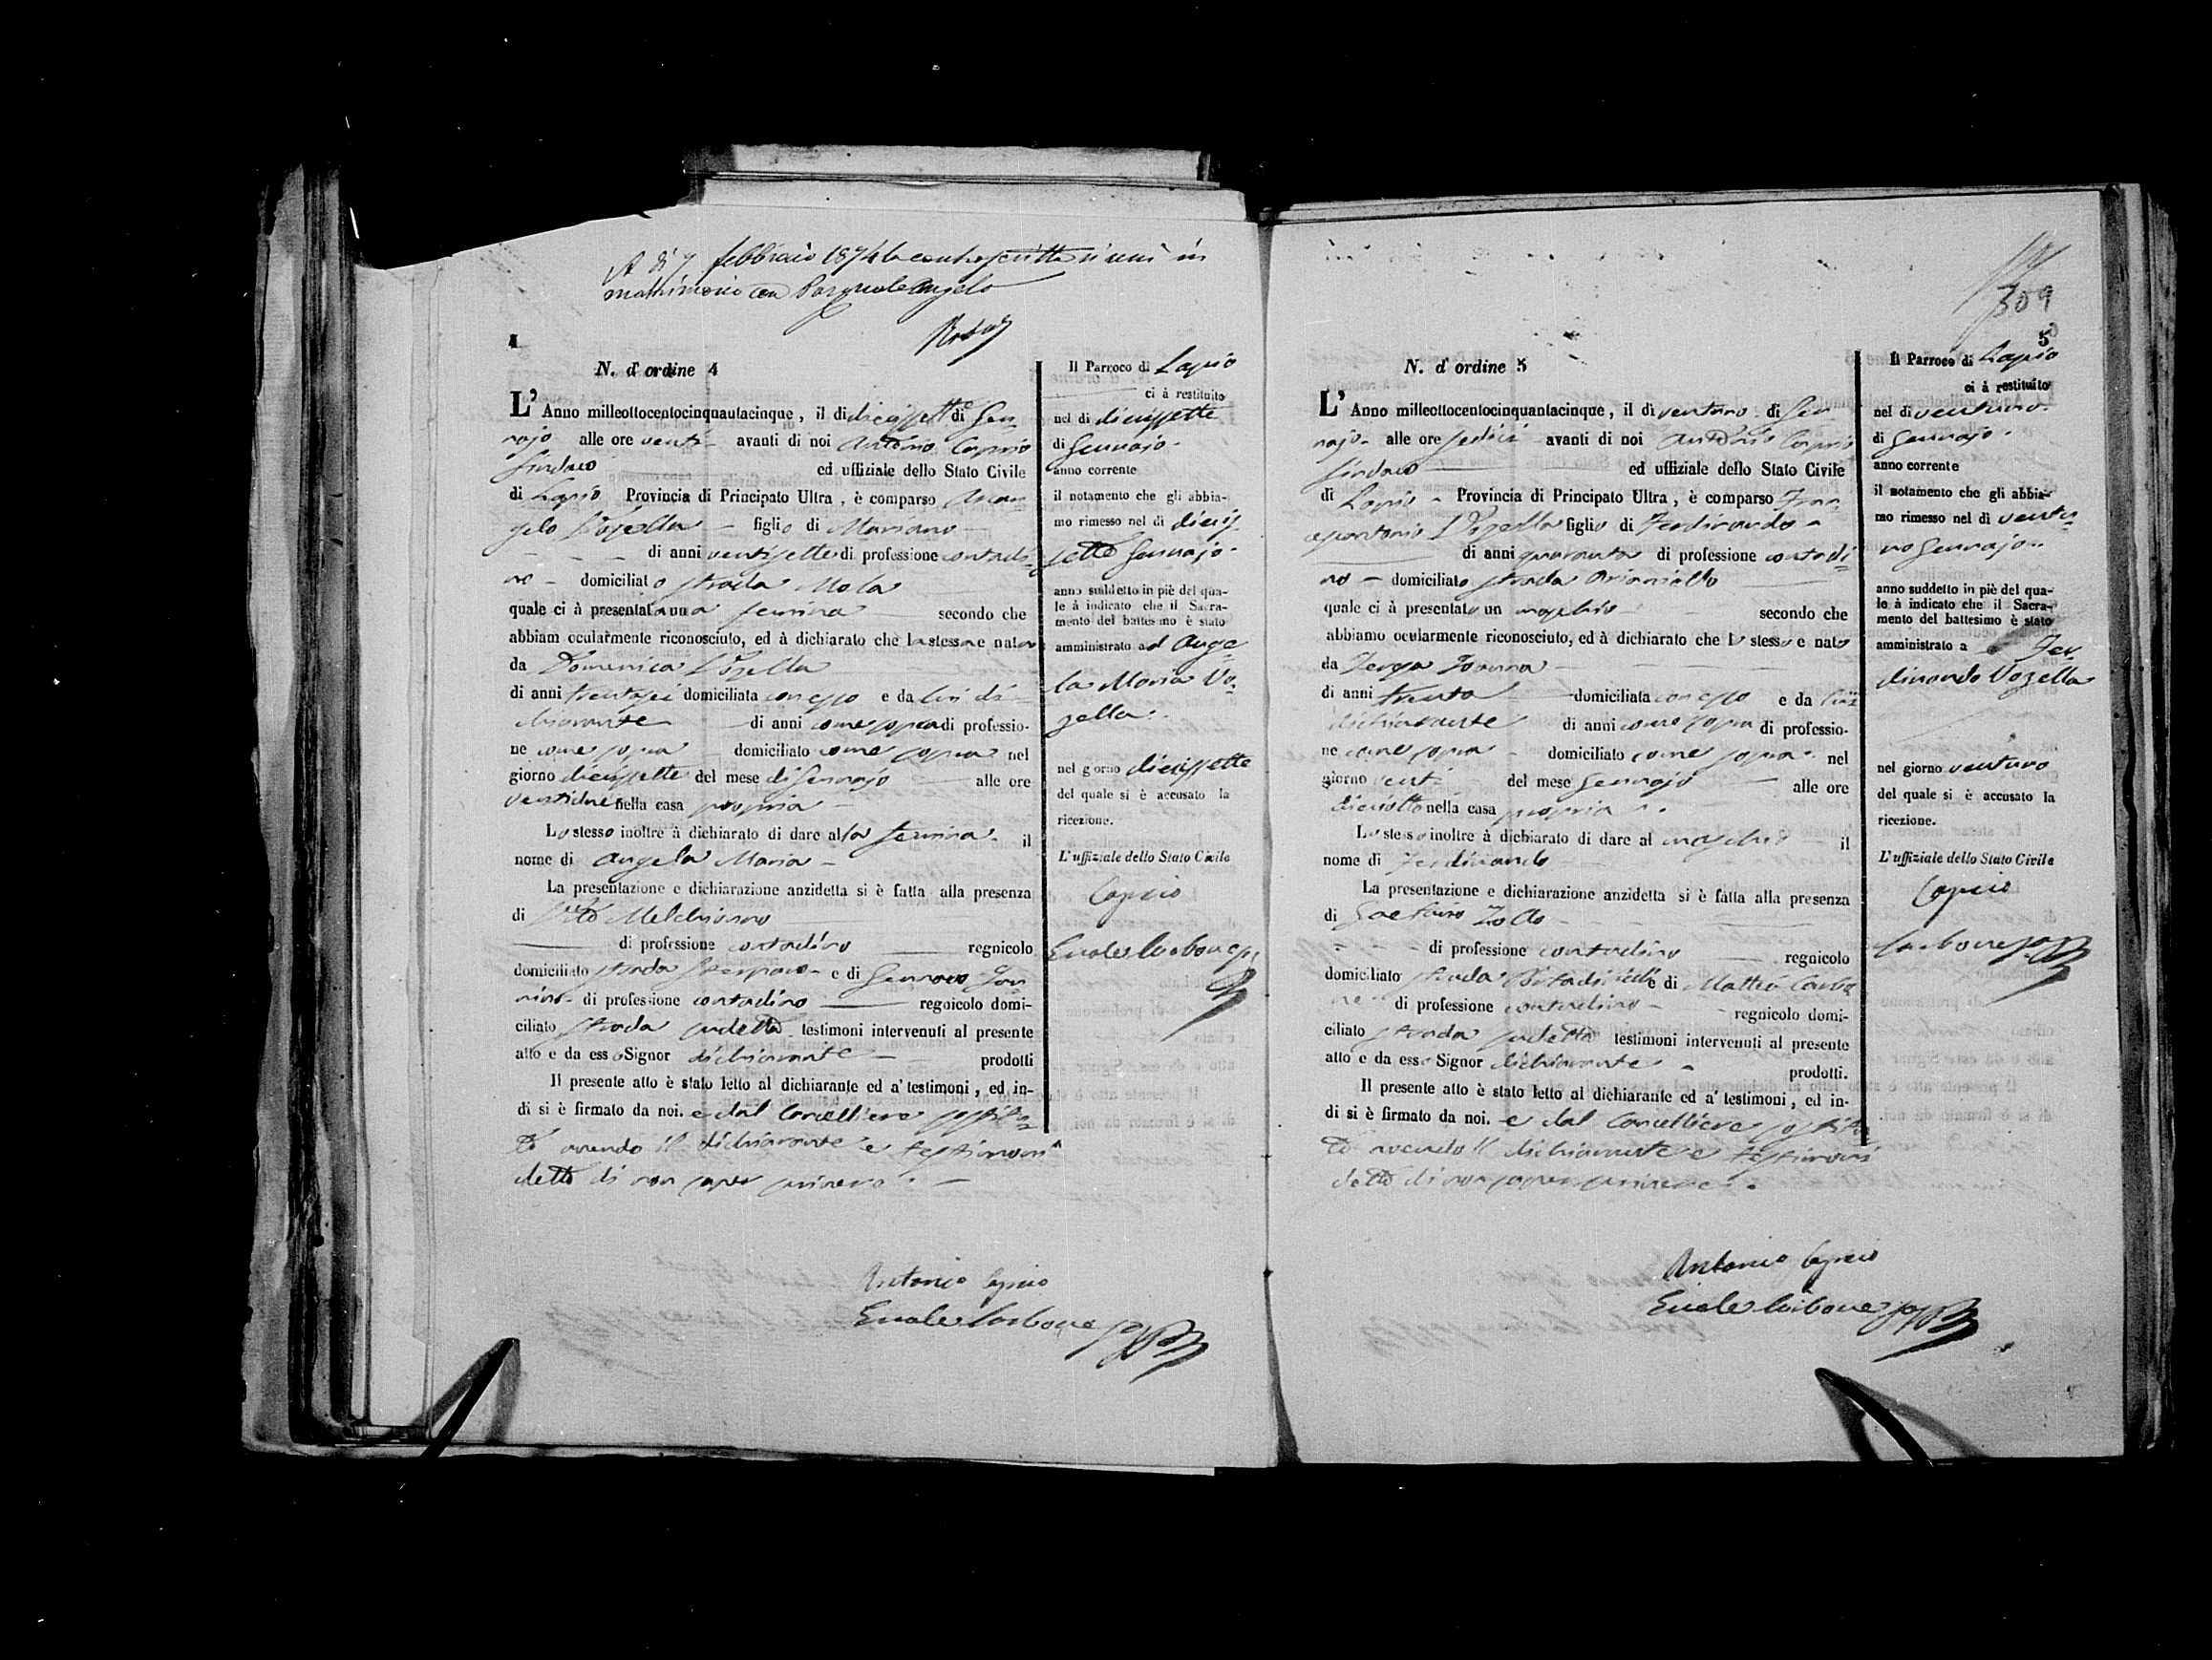 A dì 7 febbraio 1874 la controscritta si unì in
matrimonio con Pasquale Angelo
4
N. d'ordine 4
L'Anno milleottocentocinquantacinque, il dì diciassette di Gen-
najo alle ore venti avanti di noi Antonio Caprio
Sindaco ed uffiziale dello Stato Civile
di Lapio Provincia di Principato Ultra, è comparso Arcan
gelo Vozella figlio di Mariano
di anni ventisette di professione contadi-
no domiciliato strada Mola
quale ci à presentata una femina secondo che
abbiam ocularmente riconosciuto, ed à dichiarato che la stessa e nata
da Domenica Vozella
di anni trentasei domiciliata con esso e da lui di-
chiarante di anni come sopra di professio-
ne come sopra domiciliato come sopra nel
giorno diciassette del mese di Gennajo alle ore
ventidue nella casa propria
Lo stesso inoltre à dichiarato di dare alla femina il
nome di Angela Maria
La presentazione e dichiarazione anzidetta si è fatta alla presenza
di Melchionno
di professione contadino regnicolo
domiciliato strada e di Gennaro
di professione contadino regnicolo domi-
ciliato strada sudetta testimoni intervenuti al presente
atto e da esso Signor dichiarante prodotti
Il presente atto è stato letto al dichiarante ed a' testimoni, ed in-
di si è firmato da noi. e dal Cancelliere sostitu-
to avendo il dichiarante e testimoni
detto di non saper scrivere.
Antonio Caprio
Ercole Carbone
Il Parroco di Lapio
ci à restituito
nel dì diciassette
di Gennajo
anno corrente
il notamento che gli abbia-
mo rimesso nel dì dicias-
sette Gennajo
anno suddetto in piè del qua-
le à indicato che il Sacra-
mento del battesimo è stato
amministrato ad Ange-
la Maria Vo-
zella
nel giorno diciassette
del quale si è accusato la
ricezione.
L'uffiziale dello Stato Civile
Caprio
Ercole Carbone
309
5
N. d'ordine 5
L'Anno milleottocentocinquantacinque, il dì ventuno di Gen
najo alle ore sedici avanti di noi Antonio Caprio
Sindaco ed uffiziale dello Stato Civile
di Lapio Provincia di Principato Ultra, è comparso Fran-
cescantonio Vozella figlio di Ferdinando
di anni quaranta di professione contadi-
no domiciliato strada Arianiello
quale ci à presentato un maschio secondo che
abbiamo ocularmente riconosciuto, ed à dichiarato che lo stesso e nato
da
di anni trenta domiciliata con esso e da lui
dichiarante di anni come sopra di professio-
ne come sopra domiciliato come sopra nel
giorno venti del mese Gennajo alle ore
diciotto nella casa propria
Lo stesso inoltre à dichiarato di dare al maschio il
nome di Ferdinando
La presentazione e dichiarazione anzidetta si è fatta alla presenza
di Gaetano Zollo
di professione contadino regnicolo
domiciliato strada e di Matteo
di professione contadino regnicolo domi-
ciliato strada sudetta testimoni intervenuti al presente
atto e da esso Signor dichiarante prodotti.
Il presente atto è stato letto al dichiarante ed a' testimoni, ed in-
di si è firmato da noi. e dal Cancelliere sostitu
to avendo il dichiarante e testimoni
detto di non saper scrivere.
Antonio Caprio
Ercole Carbone
Il Parroco di Lapio
ci à restituito
nel dì ventuno
di Gennajo
anno corrente
il notamento che gli abbia-
mo rimesso nel dì ventu-
no Gennajo
anno suddetto in piè del qua-
le à indicato che il Sacra-
mento del battesimo è stato
amministrato a Fer-
dinando Vozella
nel giorno ventuno
del quale si è accusato la
ricezione.
L'uffiziale dello Stato Civile
Caprio
Carbone